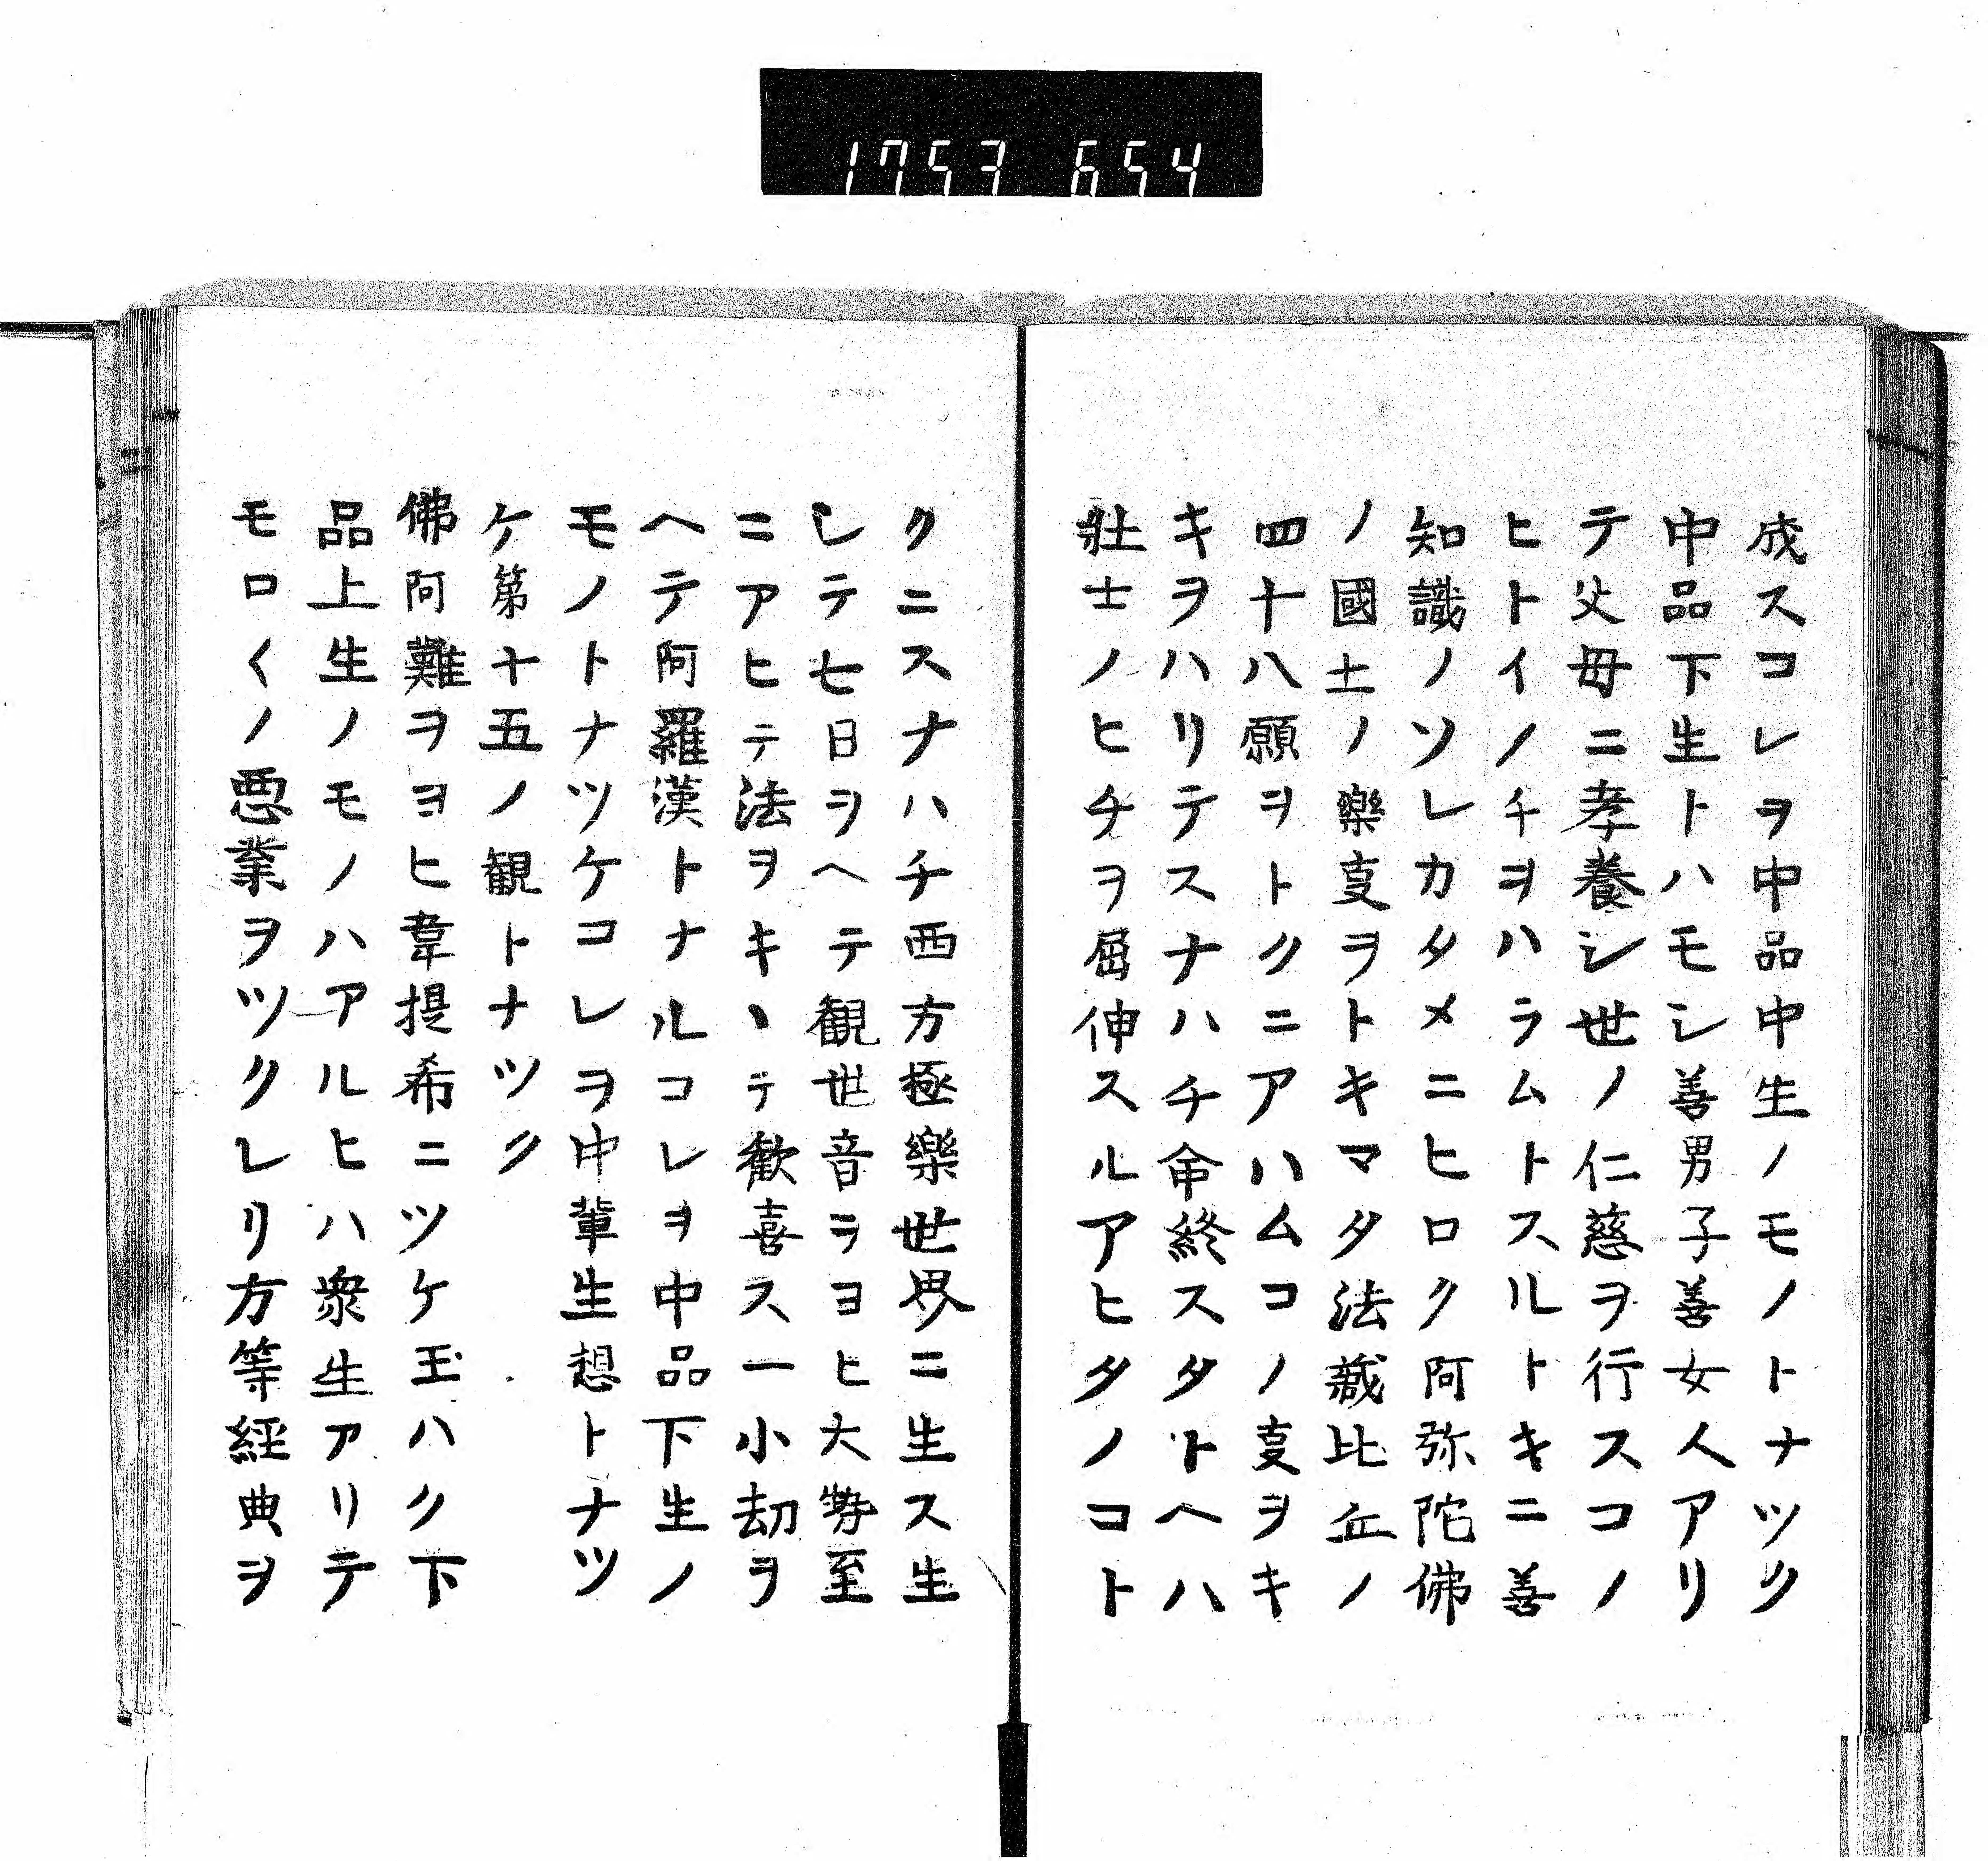 1753 654
成スコレヲ中品中生ノモノトナツク
中品下生トハモシ善男子善女人アリ
テ父母ニ孝養シ世ノ仁慈ヲ行スコノ
ヒトイノチヲハラムトスルトキニ善
知識ノソレカタメニヒロク阿弥陀佛
ノ國土ノ樂㕝ヲトキマタ法蔵比丘ノ
四十八願ヲトクニアハムコノ㕝ヲキ
キヲハリテスナハチ命終スタトヘハ
壯士ノヒチヲ屈伸スルアヒタノコト
クニスナハチ西方極樂世界ニ生ス生
シテ七日ヲヘテ観世音ヲヨヒ大勢至
ニアヒテ法ヲキヽテ歓喜ス一小劫ヲ
ヘテ阿羅漢トナルコレヲ中品下生ノ
モノトナツケコレヲ中輩生想トナツ
ケ第十五ノ観トナツク
佛阿難ヲヨヒ韋提希ニツケ玉ハク下
品上生ノモノハアルヒハ衆生アリテ
モロ〱ノ悪業ヲツクレリ方等経典ヲ